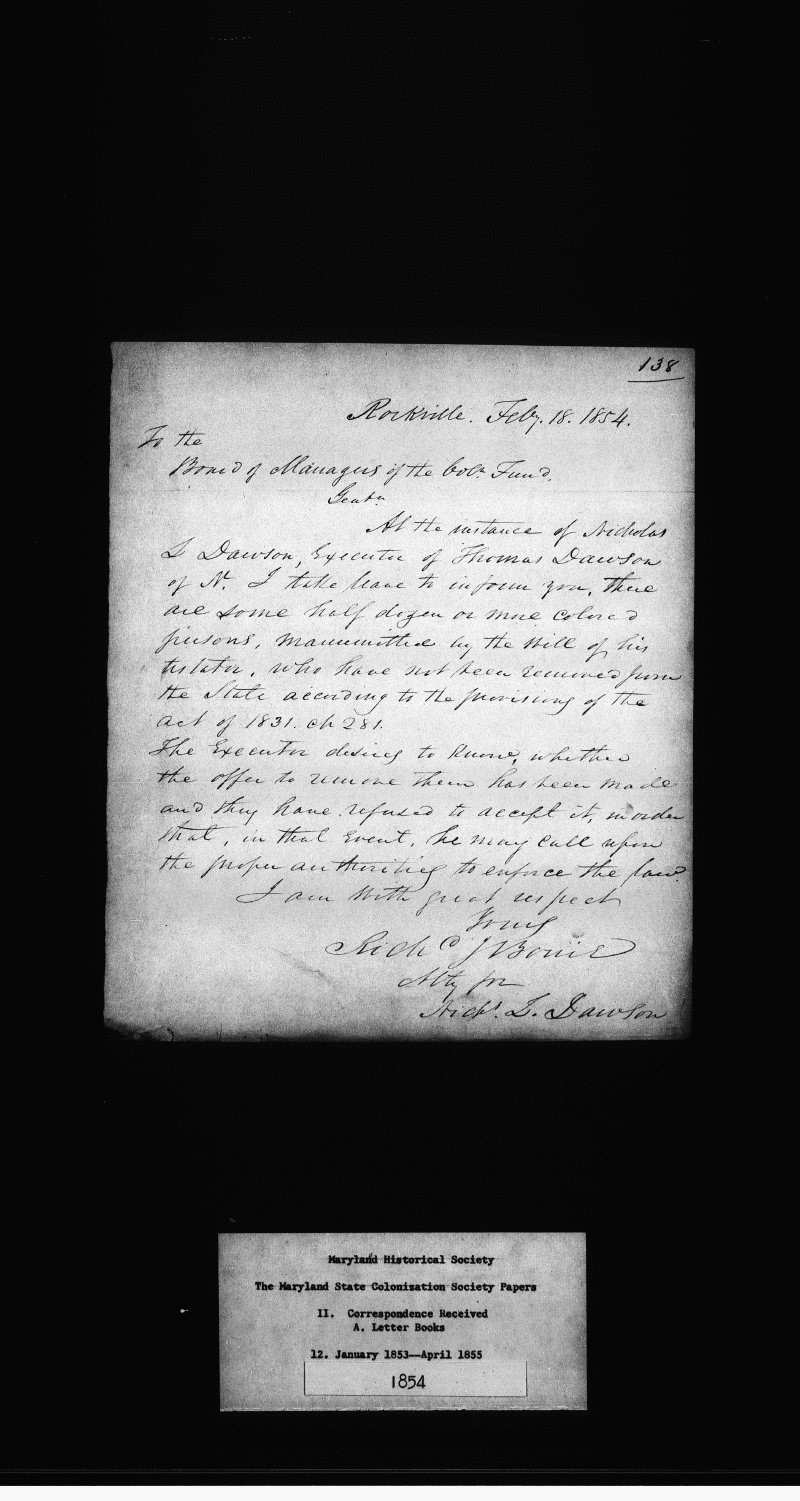 138
Rockville. Feby. 18. 1854.
To the
Board of Managers of the Coln. Fund.
Gentn
At the instance of Nicholas
L Dawson, Executor of Thomas Dawson
of N. I take leave to inform you, there
are some half dozen or more colored
persons, manumitted by the will of his
testator, who have not been removed from
the State according to the provisions of the
act of 1831. ch 281.
The Executor desires to know, whether
the offer to remove them has been made
and they have refused to accept it, in order
that, in that Event, he may call upon
the proper authorities to enforce the law.
I am with great respect
Yours
Richd J Bowie
Atty for
Nichs. L. Dawson
Maryland Historical Society
The Maryland State Colonization Society Papers
II. Correspondence Received
A. Letter Books
12. January 1853--April 1855
1854